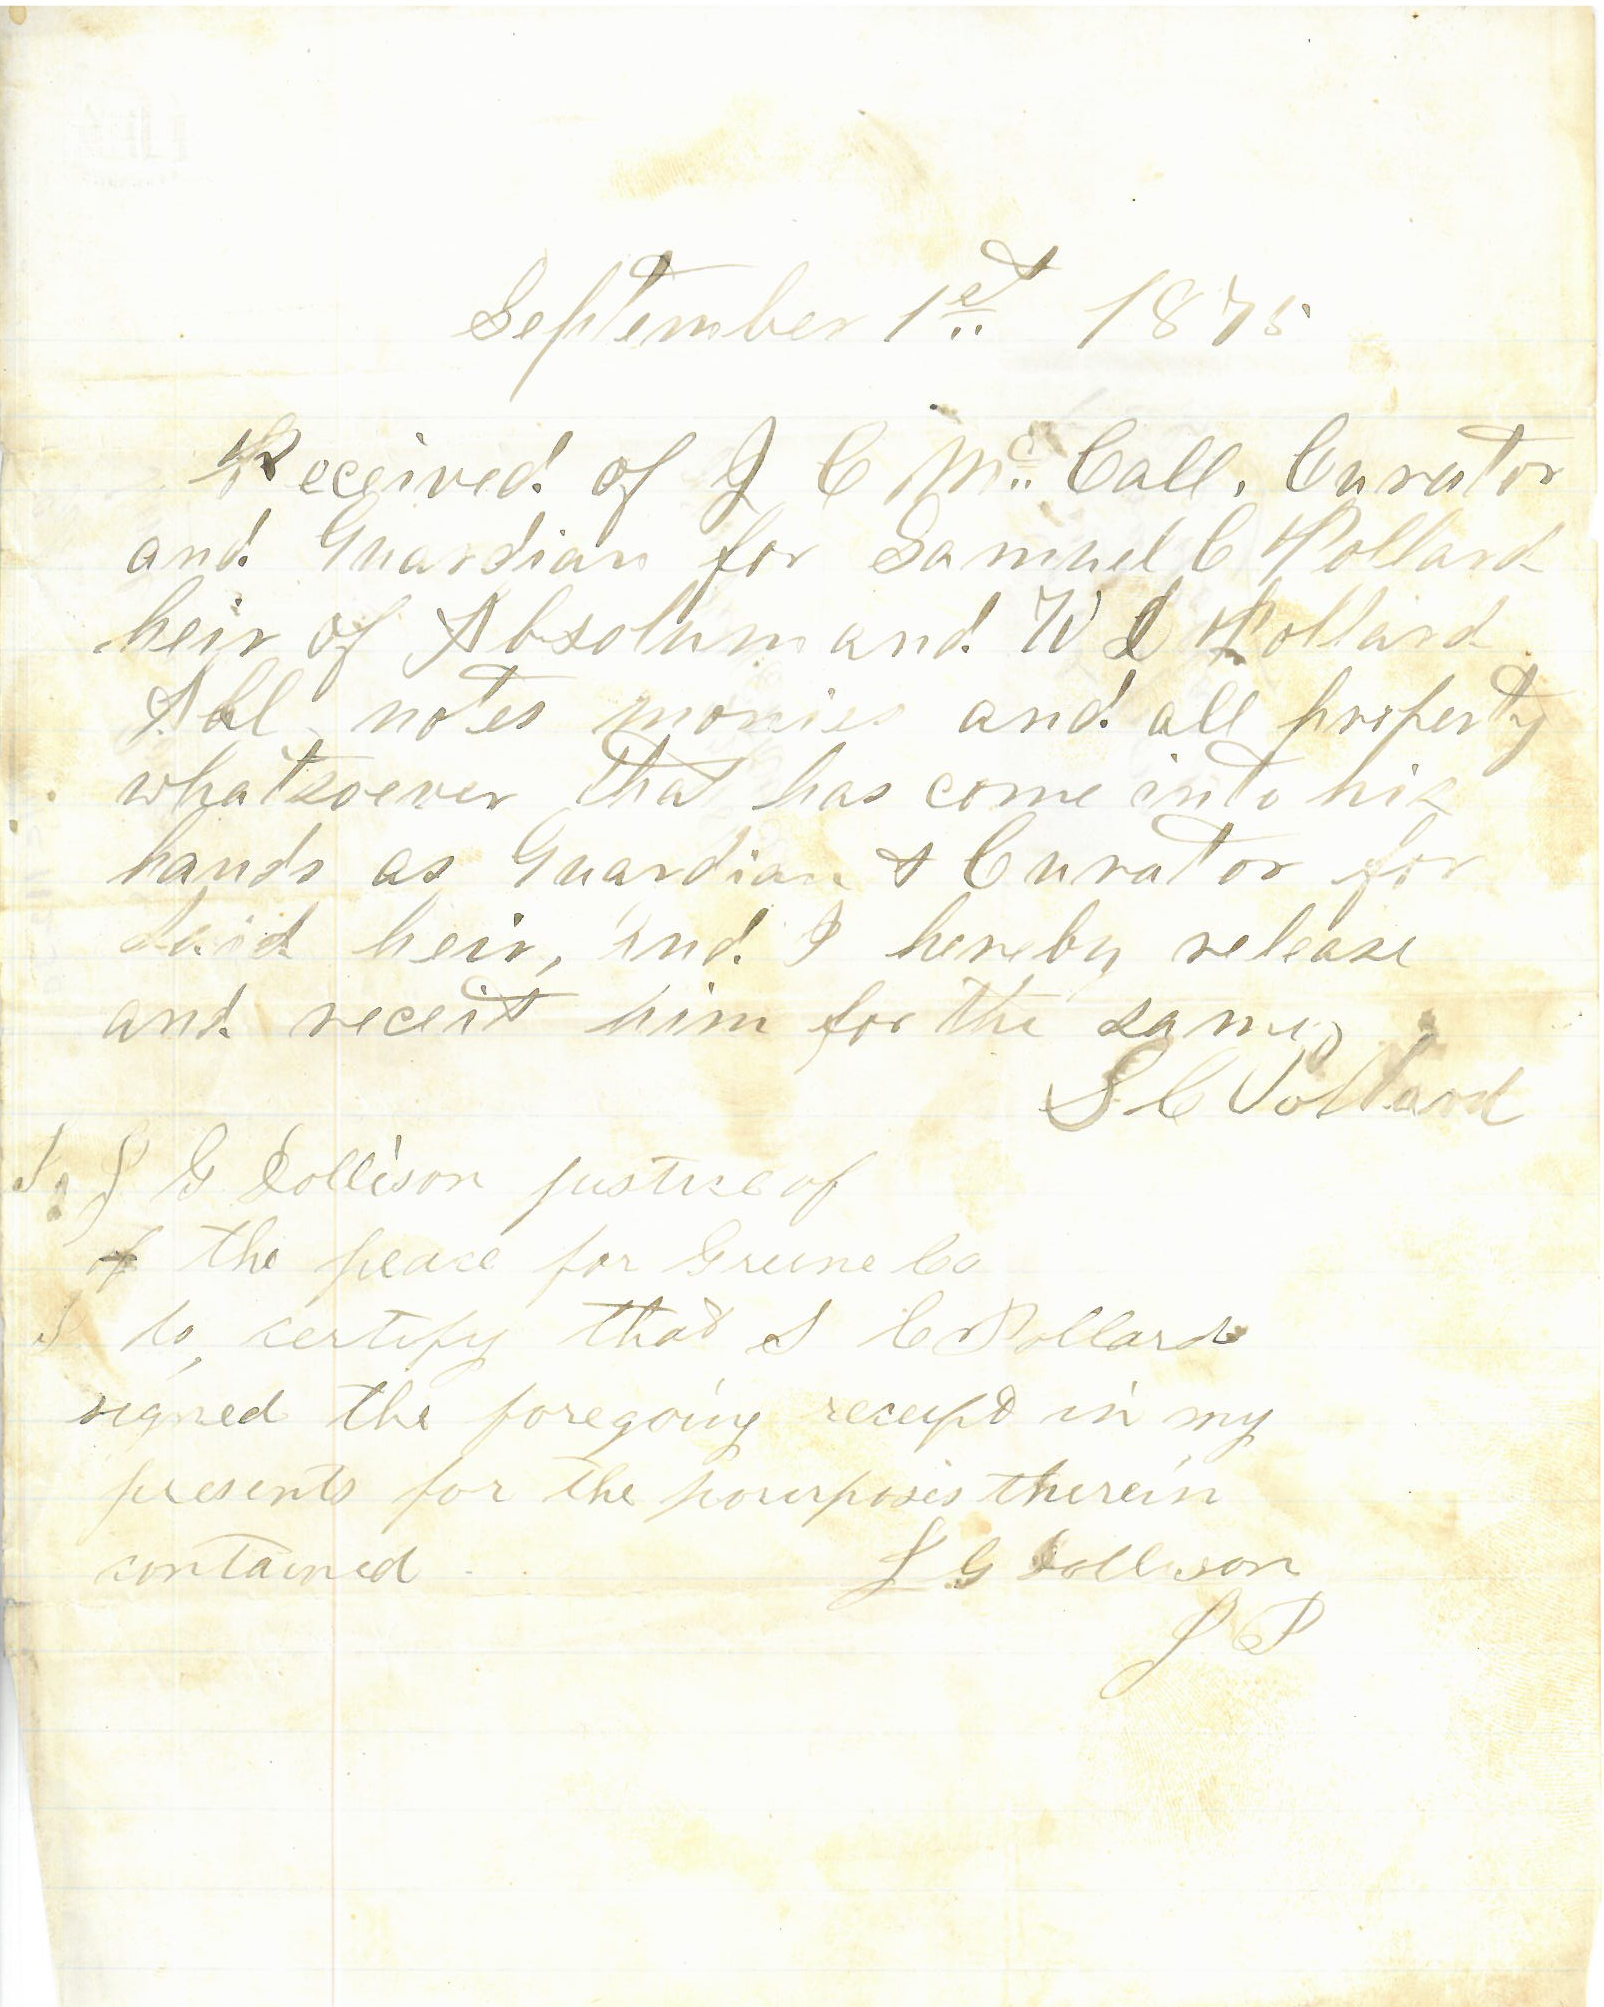 September 1st 1875
Received of J C Mc Call, Curator
and Guardian for Samuel C Pollard
heir of Absolum and W L Pollard
All notes monies and all property
whatsoever that has come into his
hands as Guardian & Curator for
said heir, and I hereby release
and receit him for the same,
S C Pollard
I, J G Dollison justice of
of the peace for Greene Co
do certify that S C Pollard
signed the foregoing receipt in my
presents for the pourposes therein
contained
J G Dollison
J P